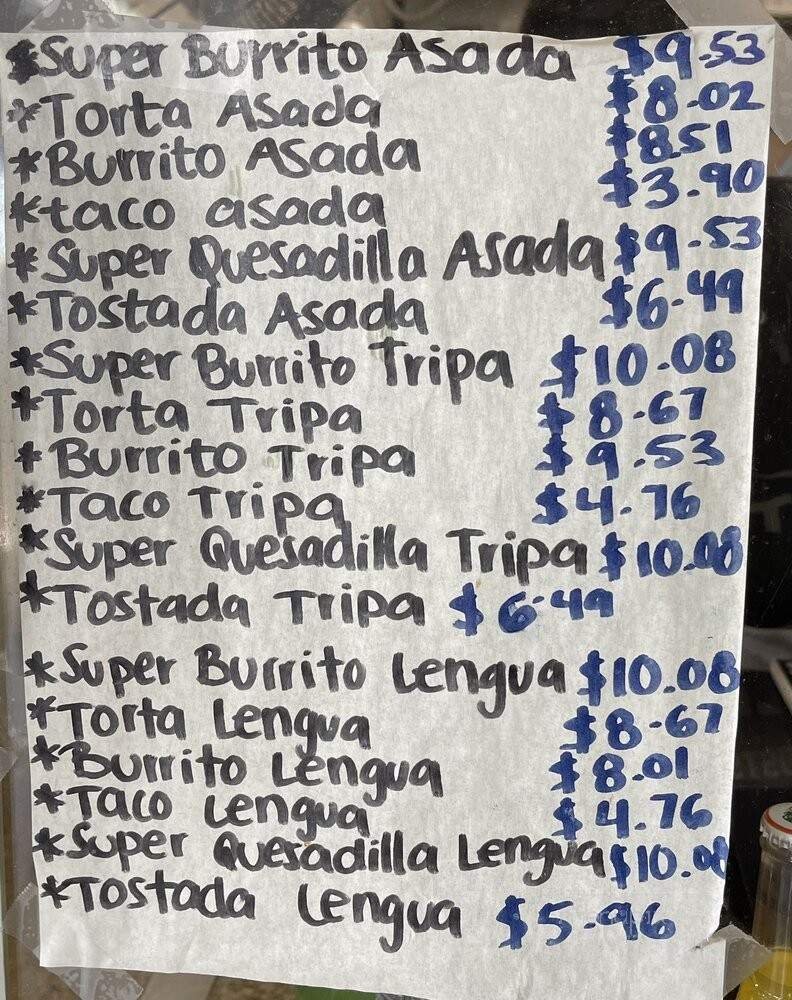 *Super Burrito Asada $9.53
*Torta Asada $8.02
*Burrito Asada $8.51
*taco asada $3.90
*Super Quesadilla Asada $9.53
*Tostada Asada $6.49
*Super Burrito Tripa $10.08
*Torta Tripa $8.67
*Burrito Tripa $9.53
*Taco Tripa $4.76
*Super Quesadilla Tripa $10.08
*Tostada Tripa $6.49
*Super Burrito Lengua $10.08
*Torta Lengua $8.67
*Burrito Lengua $8.01
*Taco Lengua $4.76
*Super Quesadilla Lengua $10.08
*Tostada Lengua $5.96